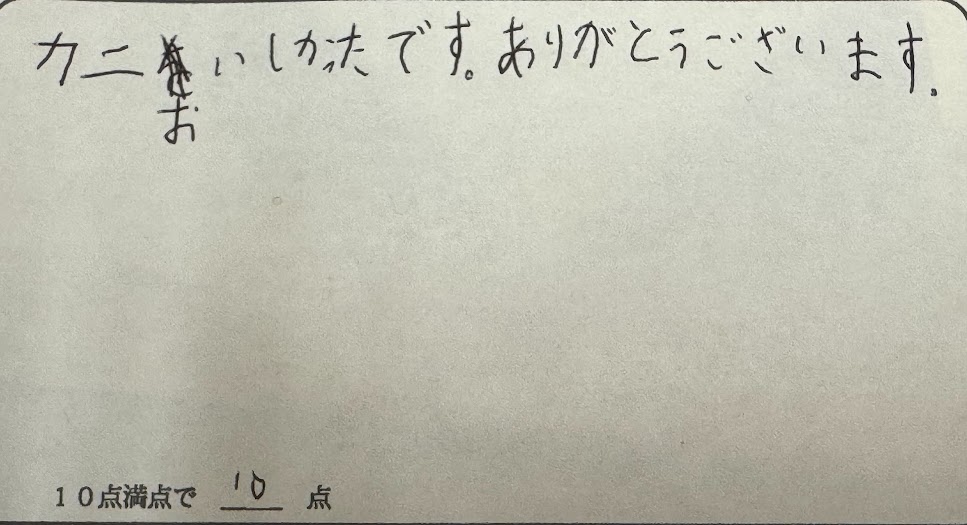 カニおいしかったです。ありがとうございます.
10点満点で 10 点